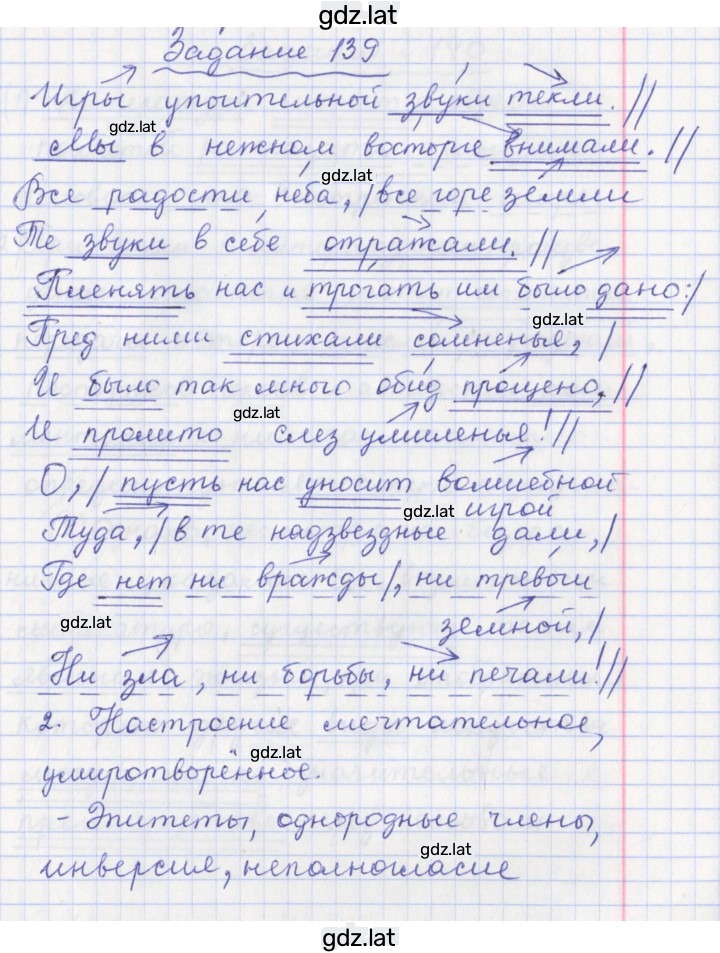 gdz.lat
Задание 139
Игры упоительной звуки текли. //
gdz.lat
Мы в нежном восторге внимали. //
gdz.lat
Все радости неба, / все горе земли
Те звуки в себе отражали. //
Пленять нас и трогать им было дано: /
gdz.lat
Пред ними стихали сомненья, /
И было так много обид прощено, //
gdz.lat
И пролито слез умиленья! //
О, / пусть нас уносит волшебной
gdz.lat игрой
Туда, / в те надзвездные дали, /
Где нет ни вражды /, ни тревоги
gdz.lat
земной, /
Ни зла, ни борьбы, ни печали! //
2. Настроение мечтательное,
gdz.lat
умиротворённое.
- Эпитеты, однородные члены,
gdz.lat
инверсия, неполногласие
gdz.lat